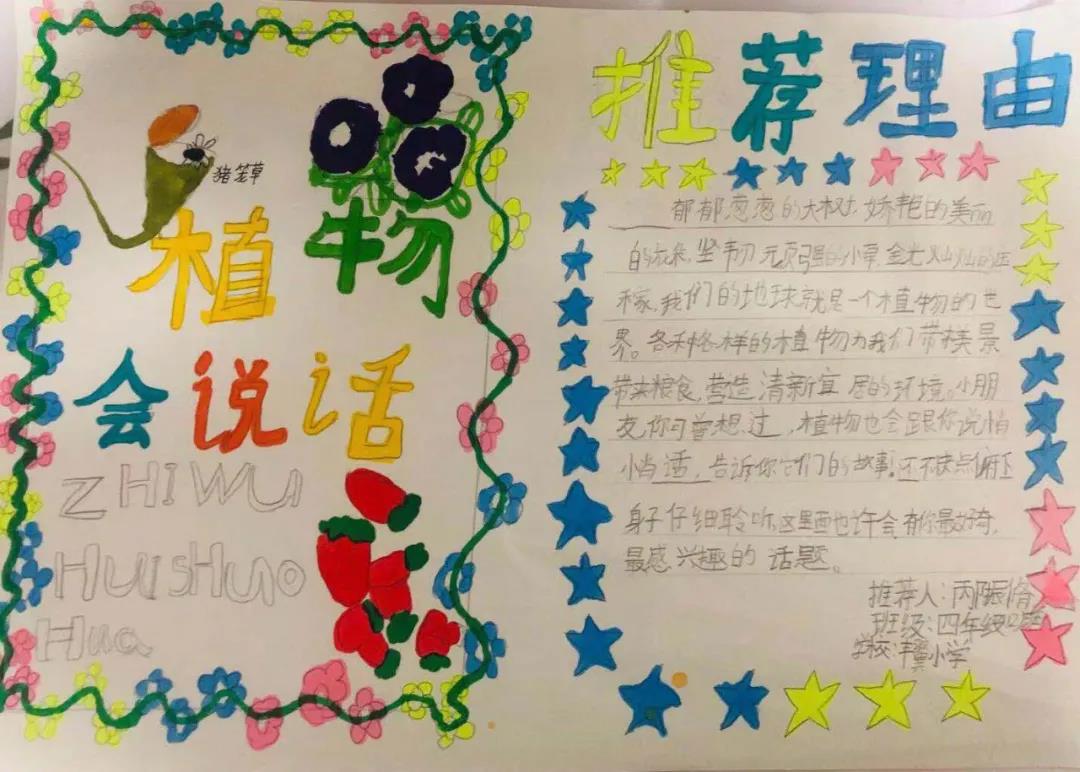 猪笼草
植物
会说话
ZHIWU
HUISHUO
Hua
推荐理由
郁郁葱葱的大树,娇艳的美丽
的花朵,坚韧顽强的小草,金光灿灿的庄
稼,我们的地球就是一个植物的世
界。各种各样的植物为我们带来美景
带来粮食,营造清新宜居的环境。小朋
友,你可曾想过,植物也会跟你说悄
悄话,告诉你它们的故事!还不快点俯下
身子仔细聆听,这里面也许会有你最好奇,
最感兴趣的话题。
推荐人:
班级:四年级
学校:小学